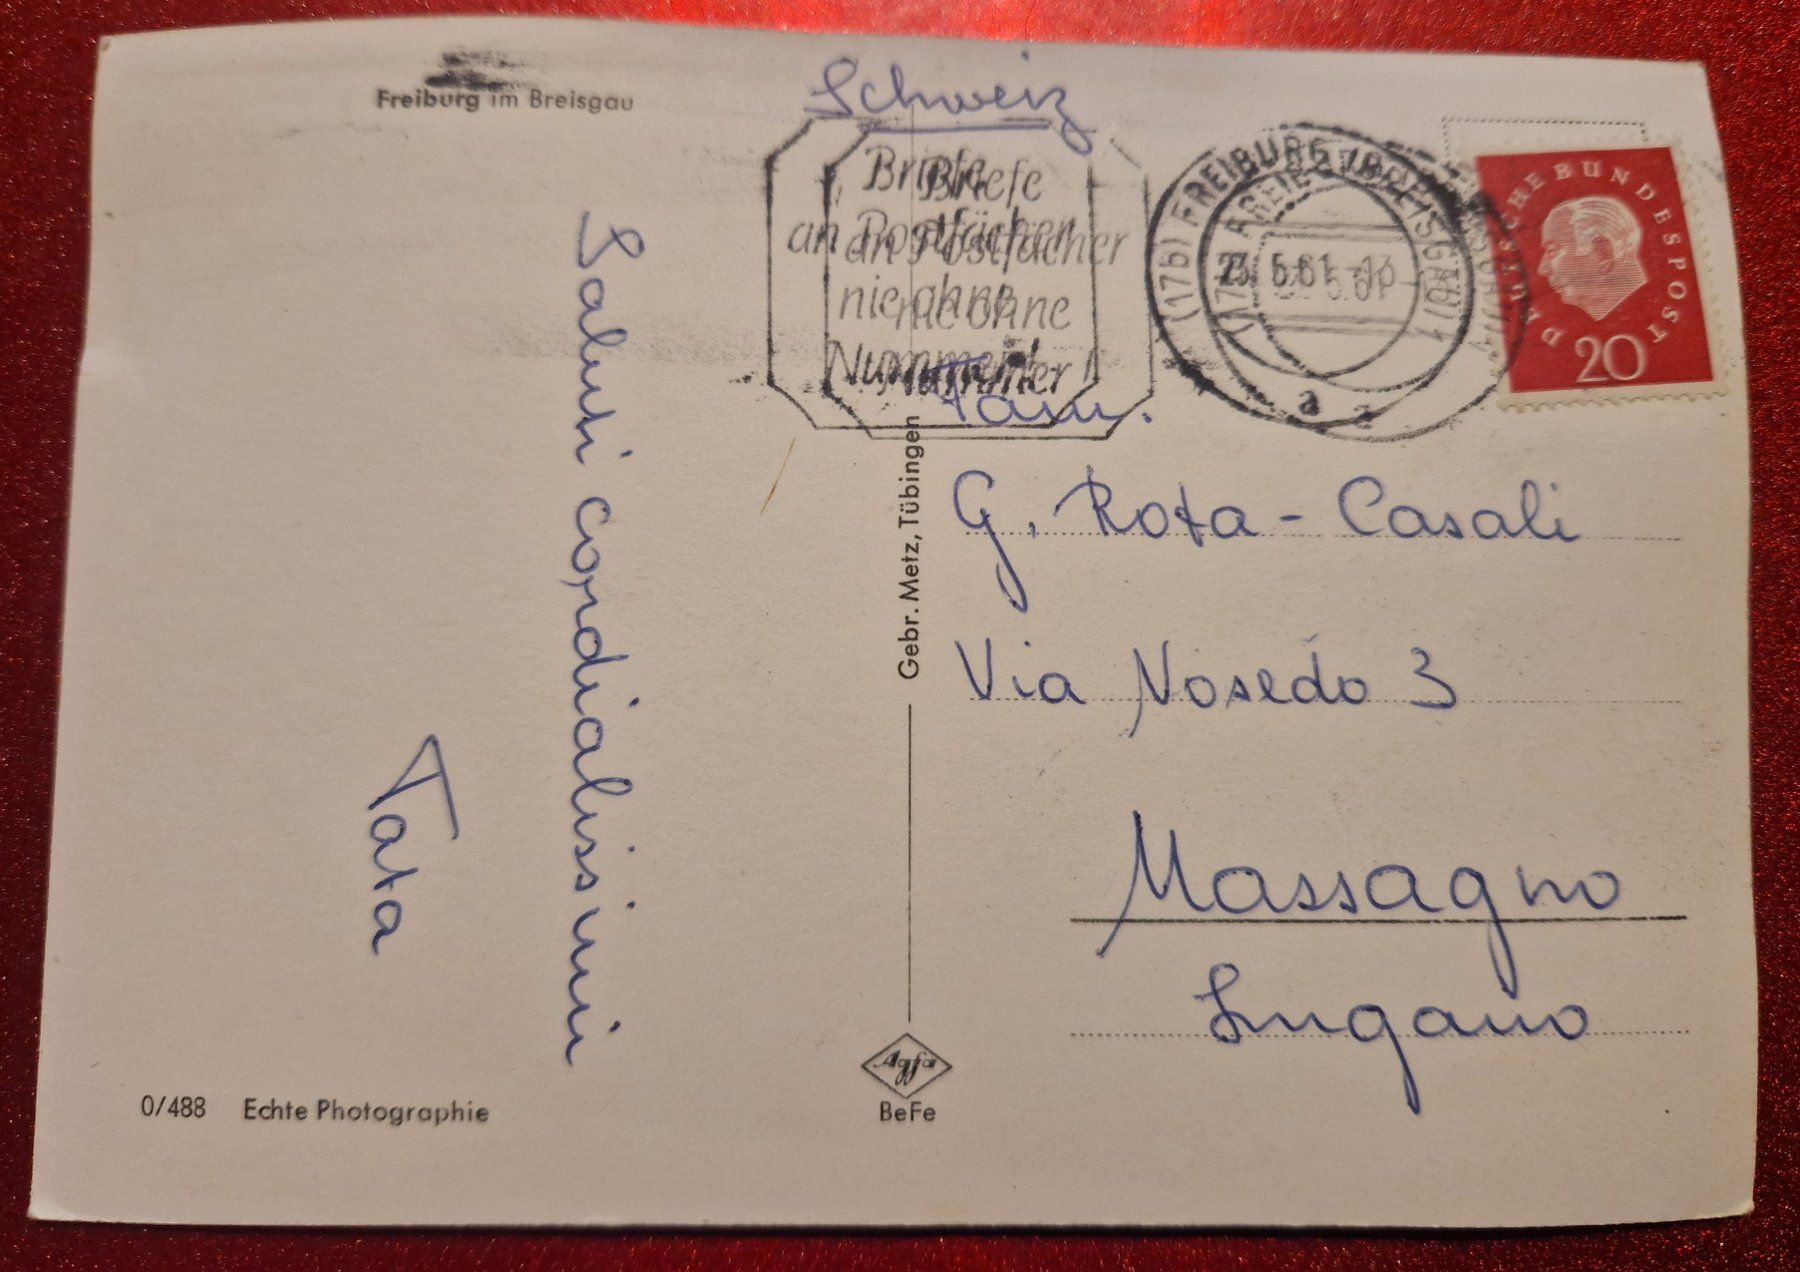 Freiburg im Breisgau
Schweiz
Briefe
an Postfächer
nie ohne
Nummer!
Briefe
an Postfächer
nie ohne
Nummer!
(17b) FREIBURG (BREISGAU) 1
23. 5.61-13
a
DEUTSCHE BUNDESPOST
20
Saluti cordialissimi
Tata
Fam.
G. Rota-Casali
Via Nosedo 3
Massagno
Lugano
Gebr. Metz, Tübingen
Agfa
BeFe
0/488 Echte Photographie